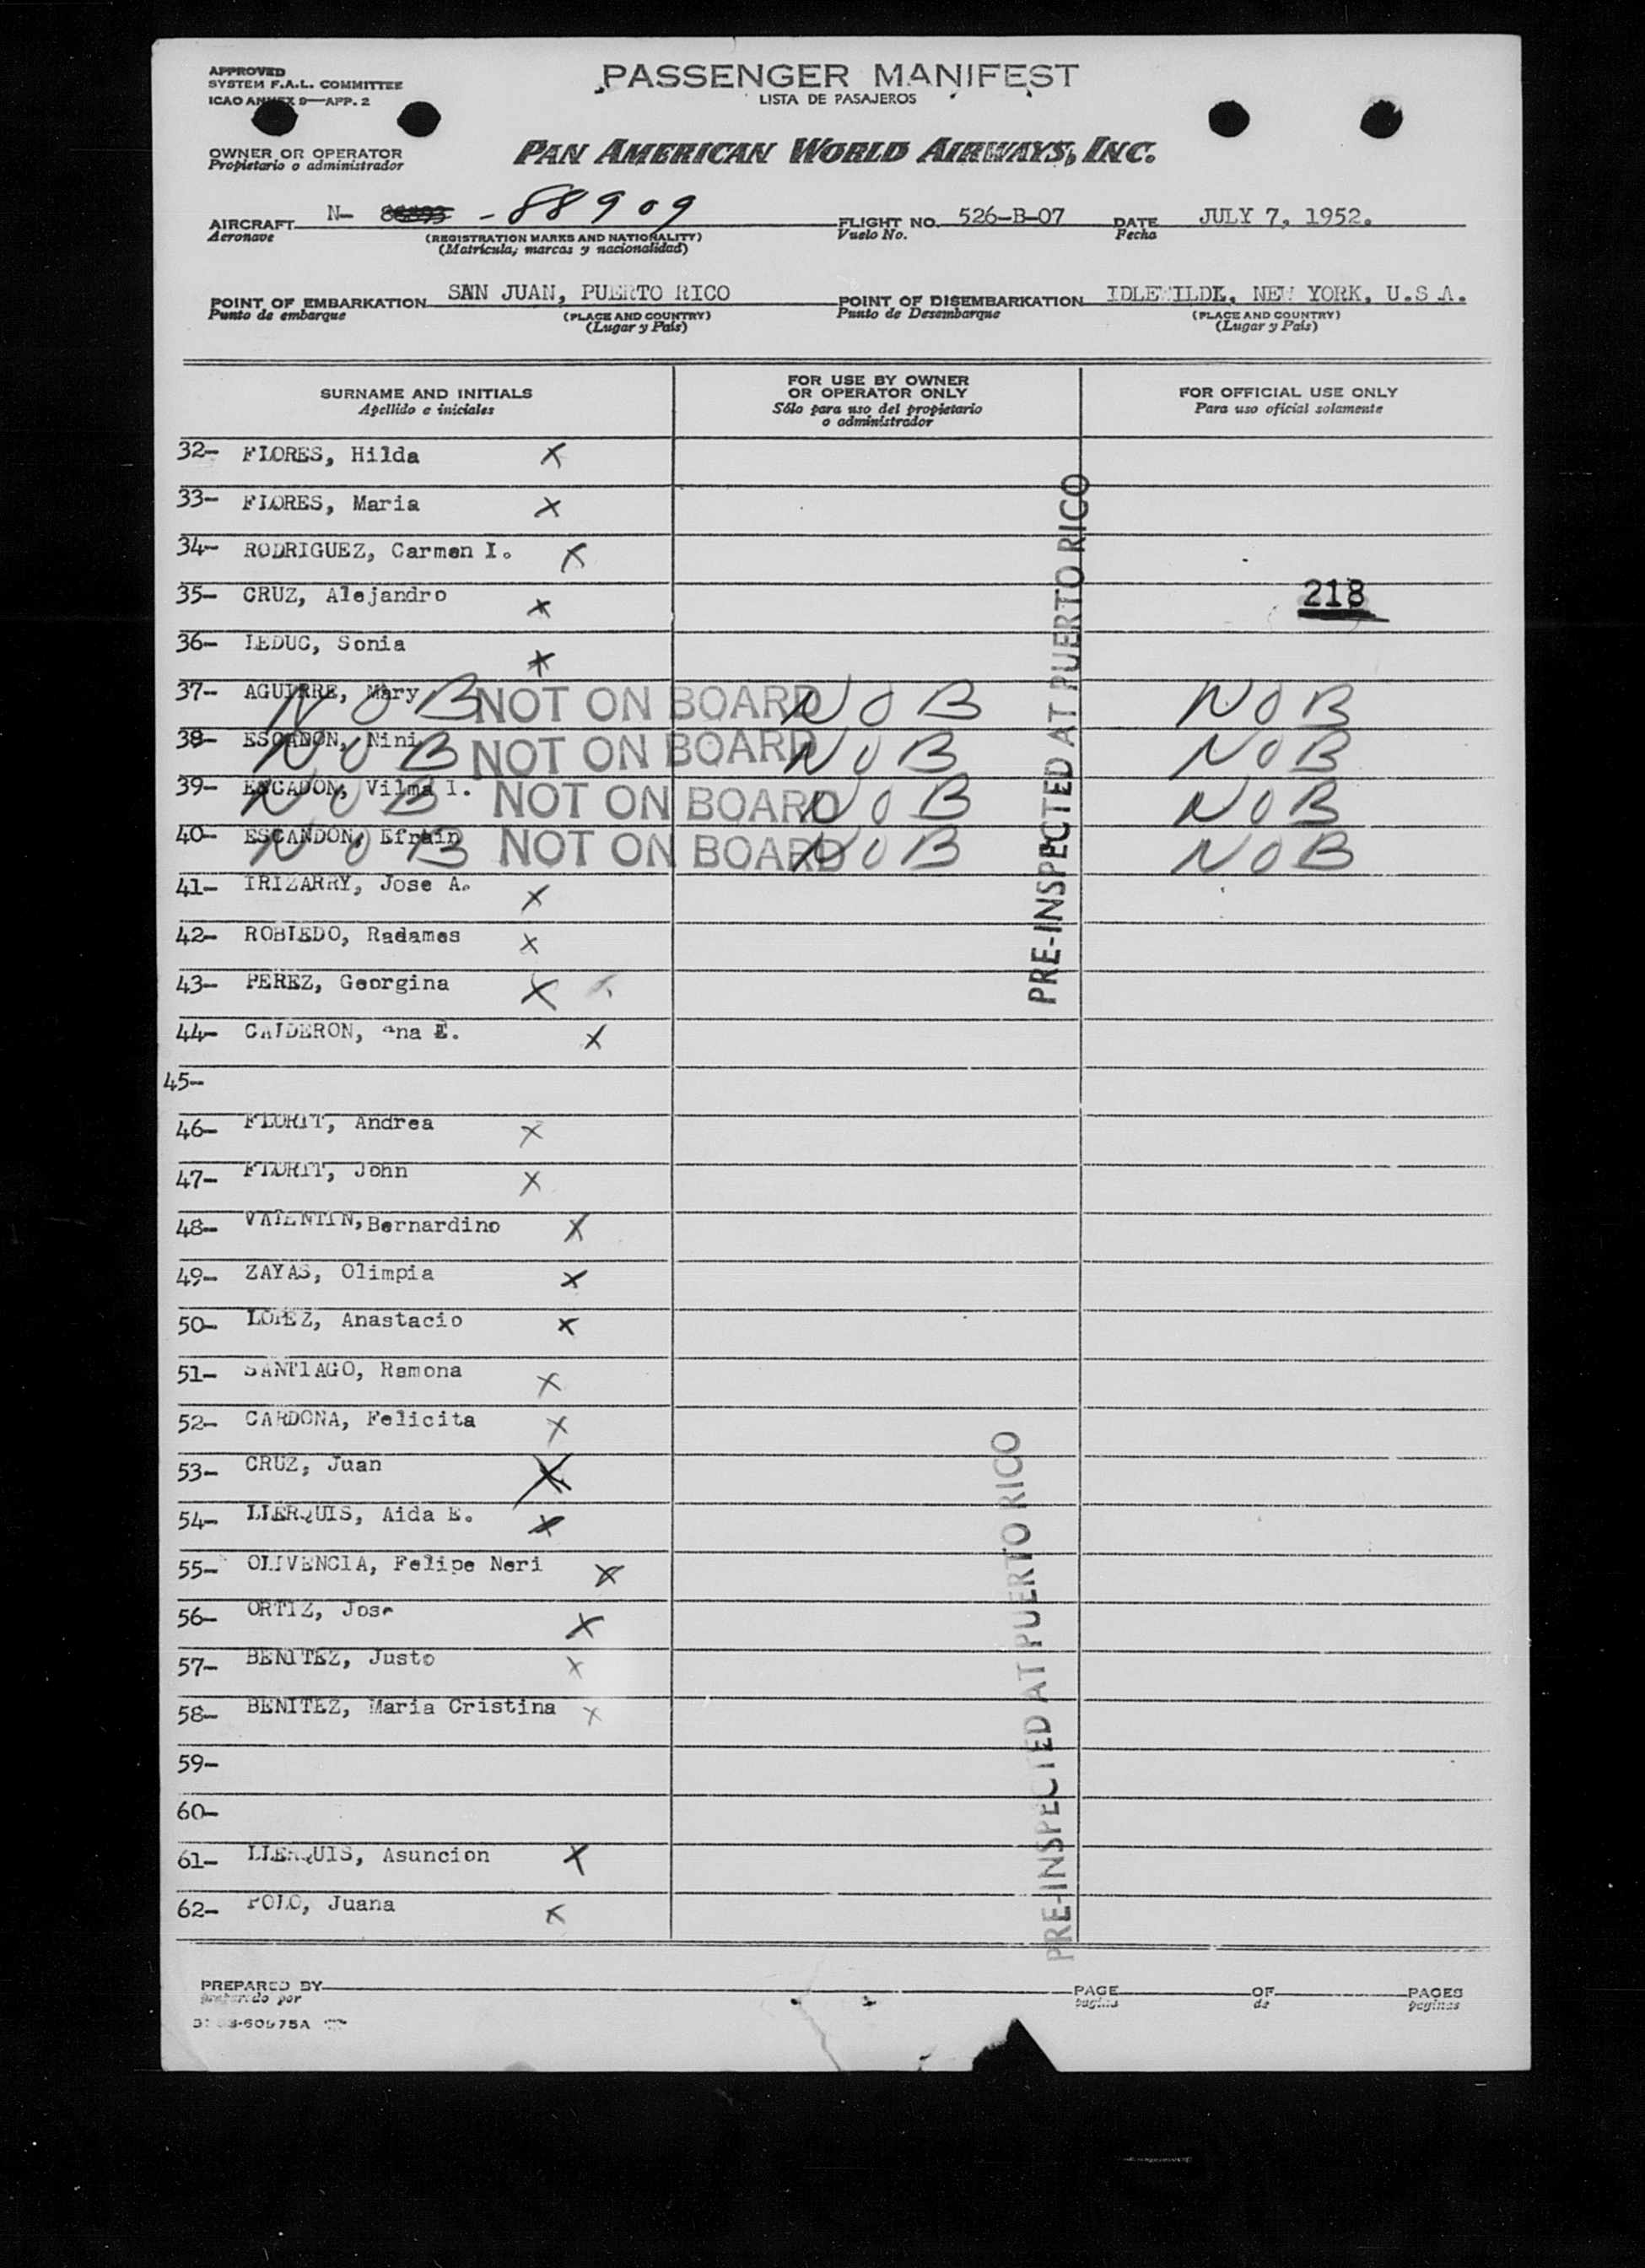 APPROVED
SYSTEM F.A.L. COMMITTEE
ICAO ANNEX 9—APP. 2
PASSENGER MANIFEST
LISTA DE PASAJEROS
OWNER OR OPERATOR
Propietario o administrador
PAN AMERICAN WORLD AIRWAYS, INC.
AIRCRAFT N- -88909
Aeronave
(REGISTRATION MARKS AND NATIONALITY)
(Matrícula, marcas y nacionalidad)
FLIGHT NO. 526-B-07
Vuelo No.
DATE JULY 7, 1952.
Fecha
POINT OF EMBARKATION SAN JUAN, PUERTO RICO
Punto de embarque
(PLACE AND COUNTRY)
(Lugar y País)
POINT OF DISEMBARKATION IDLEWILDE, NEW YORK, U.S.A.
Punto de Desembarque
(PLACE AND COUNTRY)
(Lugar y País)
SURNAME AND INITIALS
Apellido e iniciales
FOR USE BY OWNER
OR OPERATOR ONLY
Sólo para uso del propietario
o administrador
FOR OFFICIAL USE ONLY
Para uso oficial solamente
32- FLORES, Hilda X
33- FLORES, Maria X
34- RODRIGUEZ, Carmen I. X
35- CRUZ, Alejandro X
218
36- LEDUC, Sonia X
37- AGUIRRE, Mary NOB NOT ON BOARD NOB NOB
38- ESCADON, Nini NOB NOT ON BOARD NOB NOB
39- ESCADON, Vilma I. NOB NOT ON BOARD NOB NOB
40- ESCANDON, Efrain NOB NOT ON BOARD NOB NOB
41- IRIZARRY, Jose A. X
42- ROBLEDO, Radames X
43- PEREZ, Georgina X
44- CALDERON, Ana E. X
45-
46- FLORIT, Andrea X
47- FLORIT, John X
48- VALENTIN, Bernardino X
49- ZAYAS, Olimpia X
50- LOPEZ, Anastacio X
51- SANTIAGO, Ramona X
52- CARDONA, Felicita X
53- CRUZ, Juan X
54- LLERQUIS, Aida E. X
55- OLIVENCIA, Felipe Neri X
56- ORTIZ, Jose X
57- BENITEZ, Justo X
58- BENITEZ, Maria Cristina X
59-
60-
61- LLERQUIS, Asuncion X
62- POLO, Juana X
PRE-INSPECTED AT PUERTO RICO
PRE-INSPECTED AT PUERTO RICO
PREPARED BY
preparado por
PAGE OF PAGES
pagina de paginas